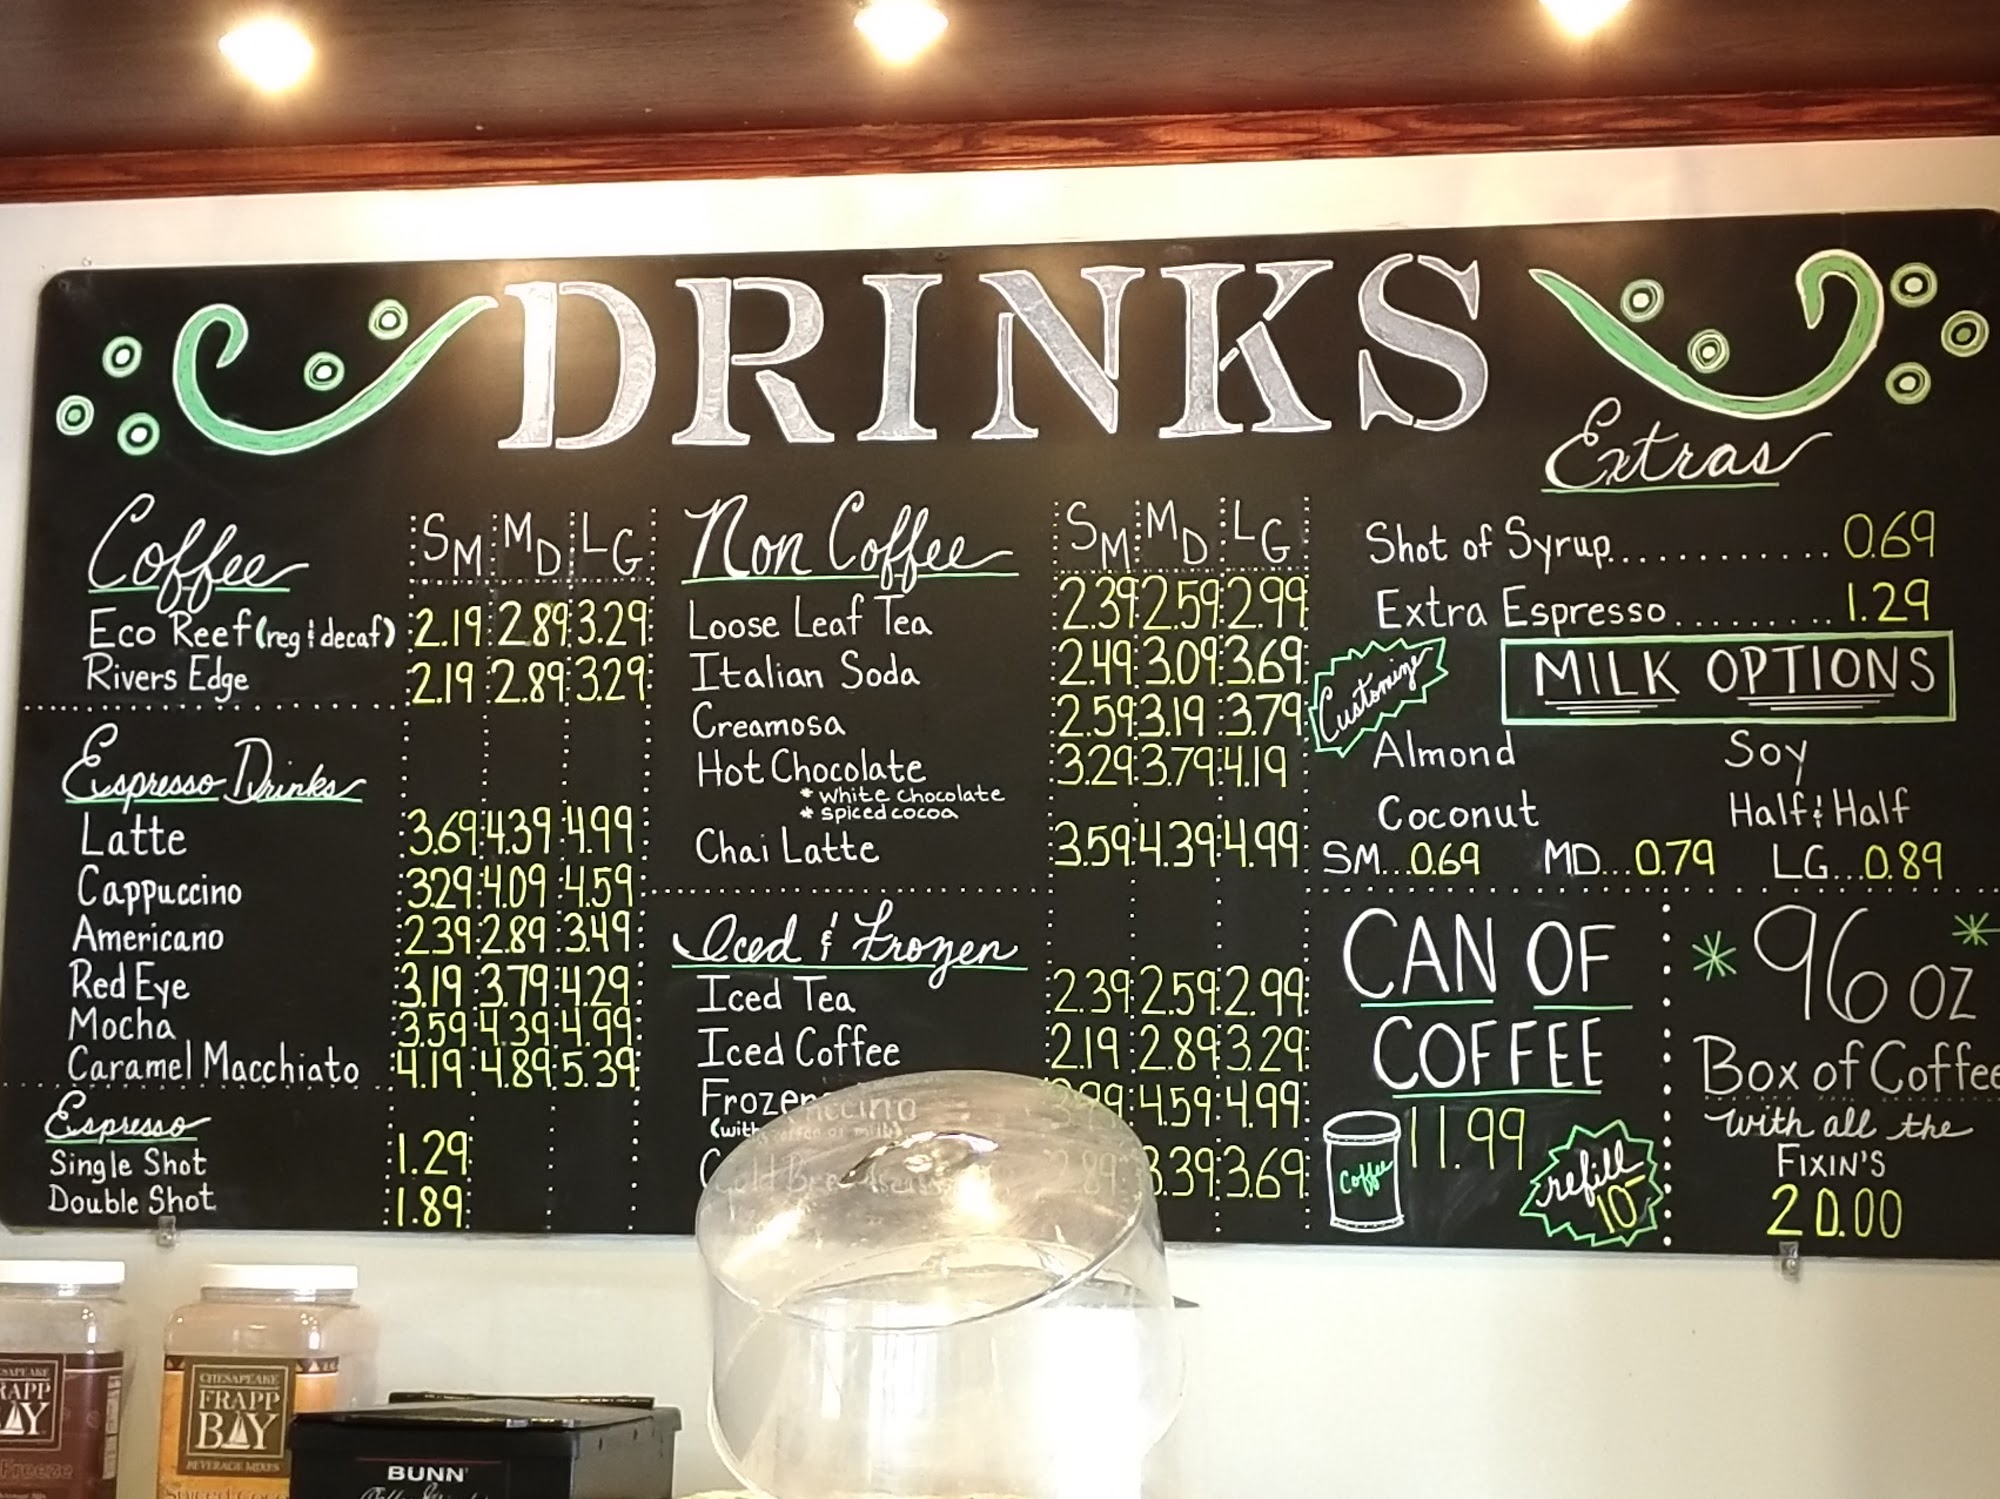 DRINKS
Coffee SM MD LG
Eco Reef (reg & decaf) 2.19 2.89 3.29
Rivers Edge 2.19 2.89 3.29
Espresso Drinks
Latte 3.69 4.39 4.99
Cappuccino 3.29 4.09 4.59
Americano 2.39 2.89 3.49
Red Eye 3.19 3.79 4.29
Mocha 3.59 4.39 4.99
Caramel Macchiato 4.19 4.89 5.39
Espresso
Single Shot 1.29
Double Shot 1.89
Non Coffee SM MD LG
Loose Leaf Tea 2.39 2.59 2.99
Italian Soda 2.49 3.09 3.69
Creamosa 2.59 3.19 3.79
Hot Chocolate 3.29 3.79 4.19
* white chocolate
* spiced cocoa
Chai Latte 3.59 4.39 4.99
Iced & Frozen
Iced Tea 2.39 2.59 2.99
Iced Coffee 2.19 2.89 3.29
Frozen 3.99 4.59 4.99
(with coffee or milk)
Cold Brew 2.89 3.39 3.69
Extras
Shot of Syrup............ 0.69
Extra Espresso.......... 1.29
Customize
MILK OPTIONS
Almond Soy
Coconut Half & Half
SM...0.69 MD...0.79 LG...0.89
CAN OF
COFFEE
Coffee
11.99
refill
10-
* 96 oz *
Box of Coffee
with all the
FIXIN'S
20.00
CHESAPEAKE
FRAPP
BAY
BEVERAGE MIXES
BUNN